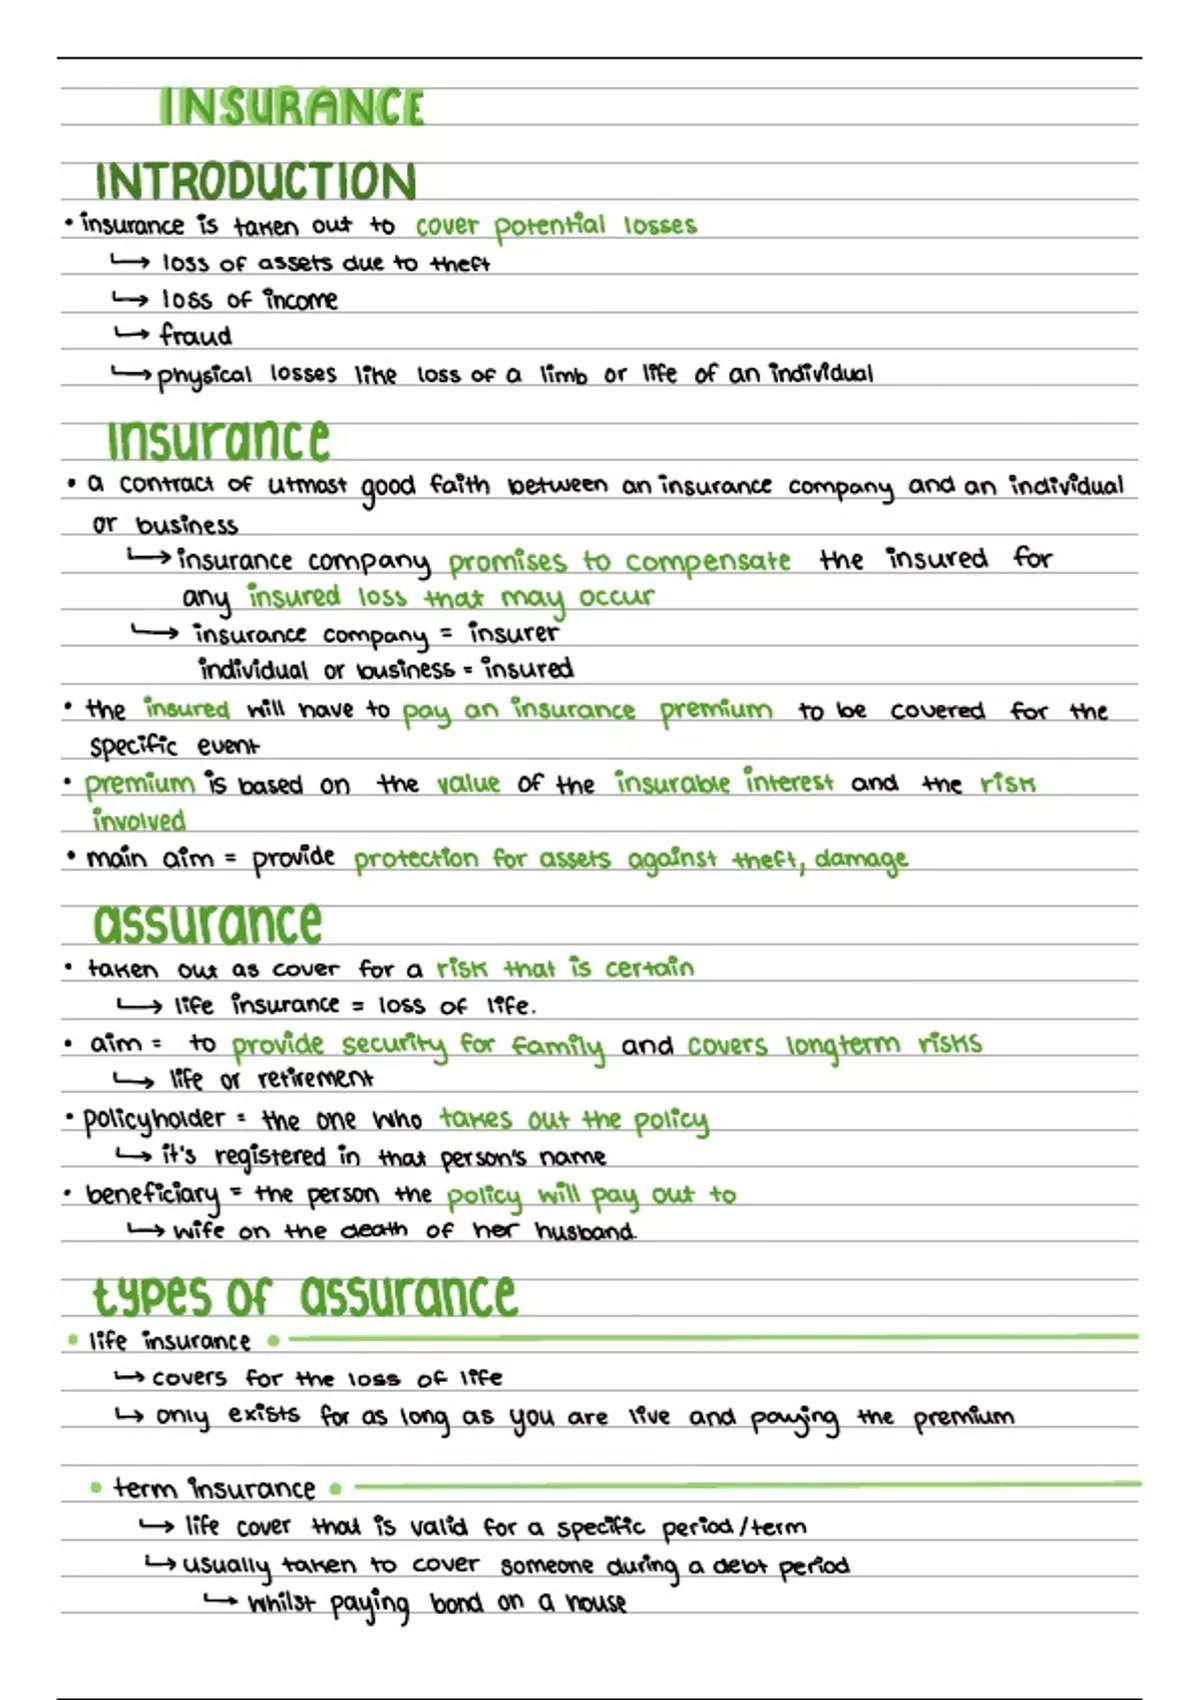 INSURANCE
INTRODUCTION
• insurance is taken out to cover potential losses
↳ loss of assets due to theft
↳ loss of income
↳ fraud
↳ physical losses like loss of a limb or life of an individual
insurance
• a contract of utmost good faith between an insurance company and an individual
or business
↳ insurance company promises to compensate the insured for
any insured loss that may occur
↳ insurance company = insurer
individual or business = insured
• the insured will have to pay an insurance premium to be covered for the
specific event
• premium is based on the value of the insurable interest and the risk
involved
• main aim = provide protection for assets against theft, damage
assurance
• taken out as cover for a risk that is certain
↳ life insurance = loss of life.
• aim = to provide security for family and covers longterm risks
↳ life or retirement
• policyholder = the one who takes out the policy
↳ it's registered in that person's name
• beneficiary = the person the policy will pay out to
↳ wife on the death of her husband.
types of assurance
• life insurance •
↳ covers for the loss of life
↳ only exists for as long as you are live and paying the premium
• term insurance •
↳ life cover that is valid for a specific period/term
↳ usually taken to cover someone during a debt period
↳ whilst paying bond on a house